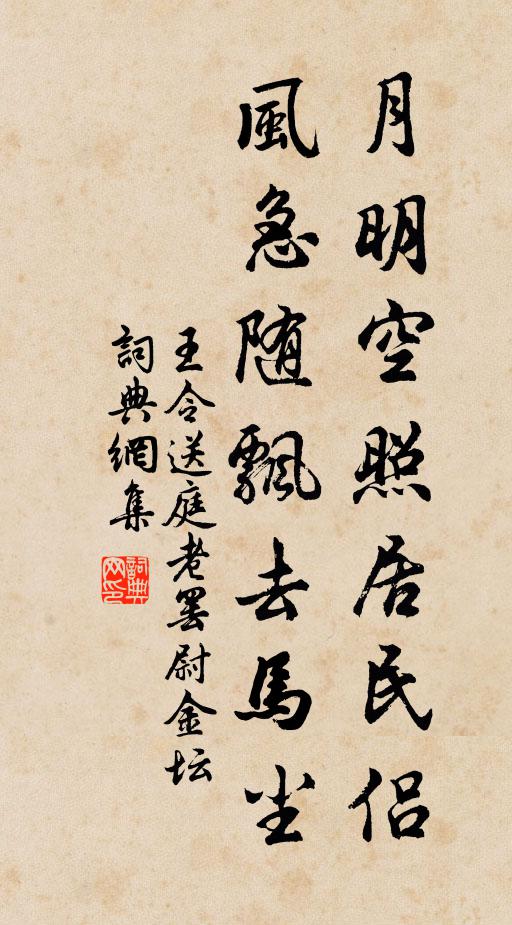 月明空照居民侣
風急随飄去馬尘
王令送庭老罢尉金坛
詞典網集
詞典
网印